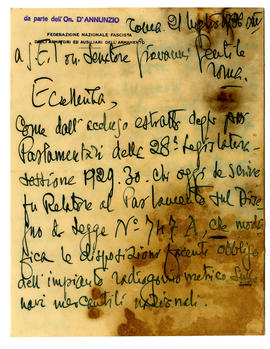 da parte dell'On. D'ANNUNZIO
Roma 21 luglio 1936 XIV
FEDERAZIONE NAZIONALE FASCISTA
DEGLI ARMATORI ED AUSILIARI DELL'ARMAMENTO
a S. E. l'on. Senatore Giovanni Gentile
Roma.
Eccellenza,
Come dall'accluso estratto degli Atti
Parlamentari della 28ª Legislatura-
sessione 1929.30. chi oggi Le scrive
fu Relatore al Parlamento sul Dise
gno di Legge Nº 747 A, che modi
fica le disposizioni facenti obbligo
dell'impianto radiogoniometrico sulle
navi mercantili nazionali.